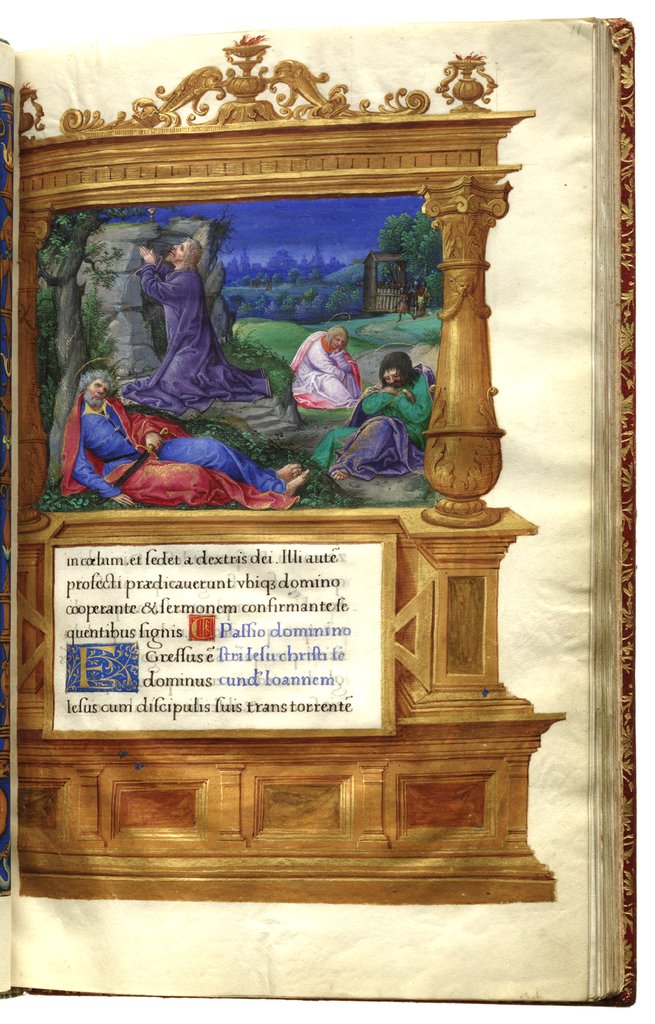 11
in cœlum et sedet a dextris dei. Illi autē
profecti prædicauerunt vbiqȝ domino
cooperante & sermonem confirmante se
quentibus signis Passio domini no
Egressus ē stri Iesu christi se
dominus cund' Ioannem.
Iesus cum discipulis suis trans torrentē